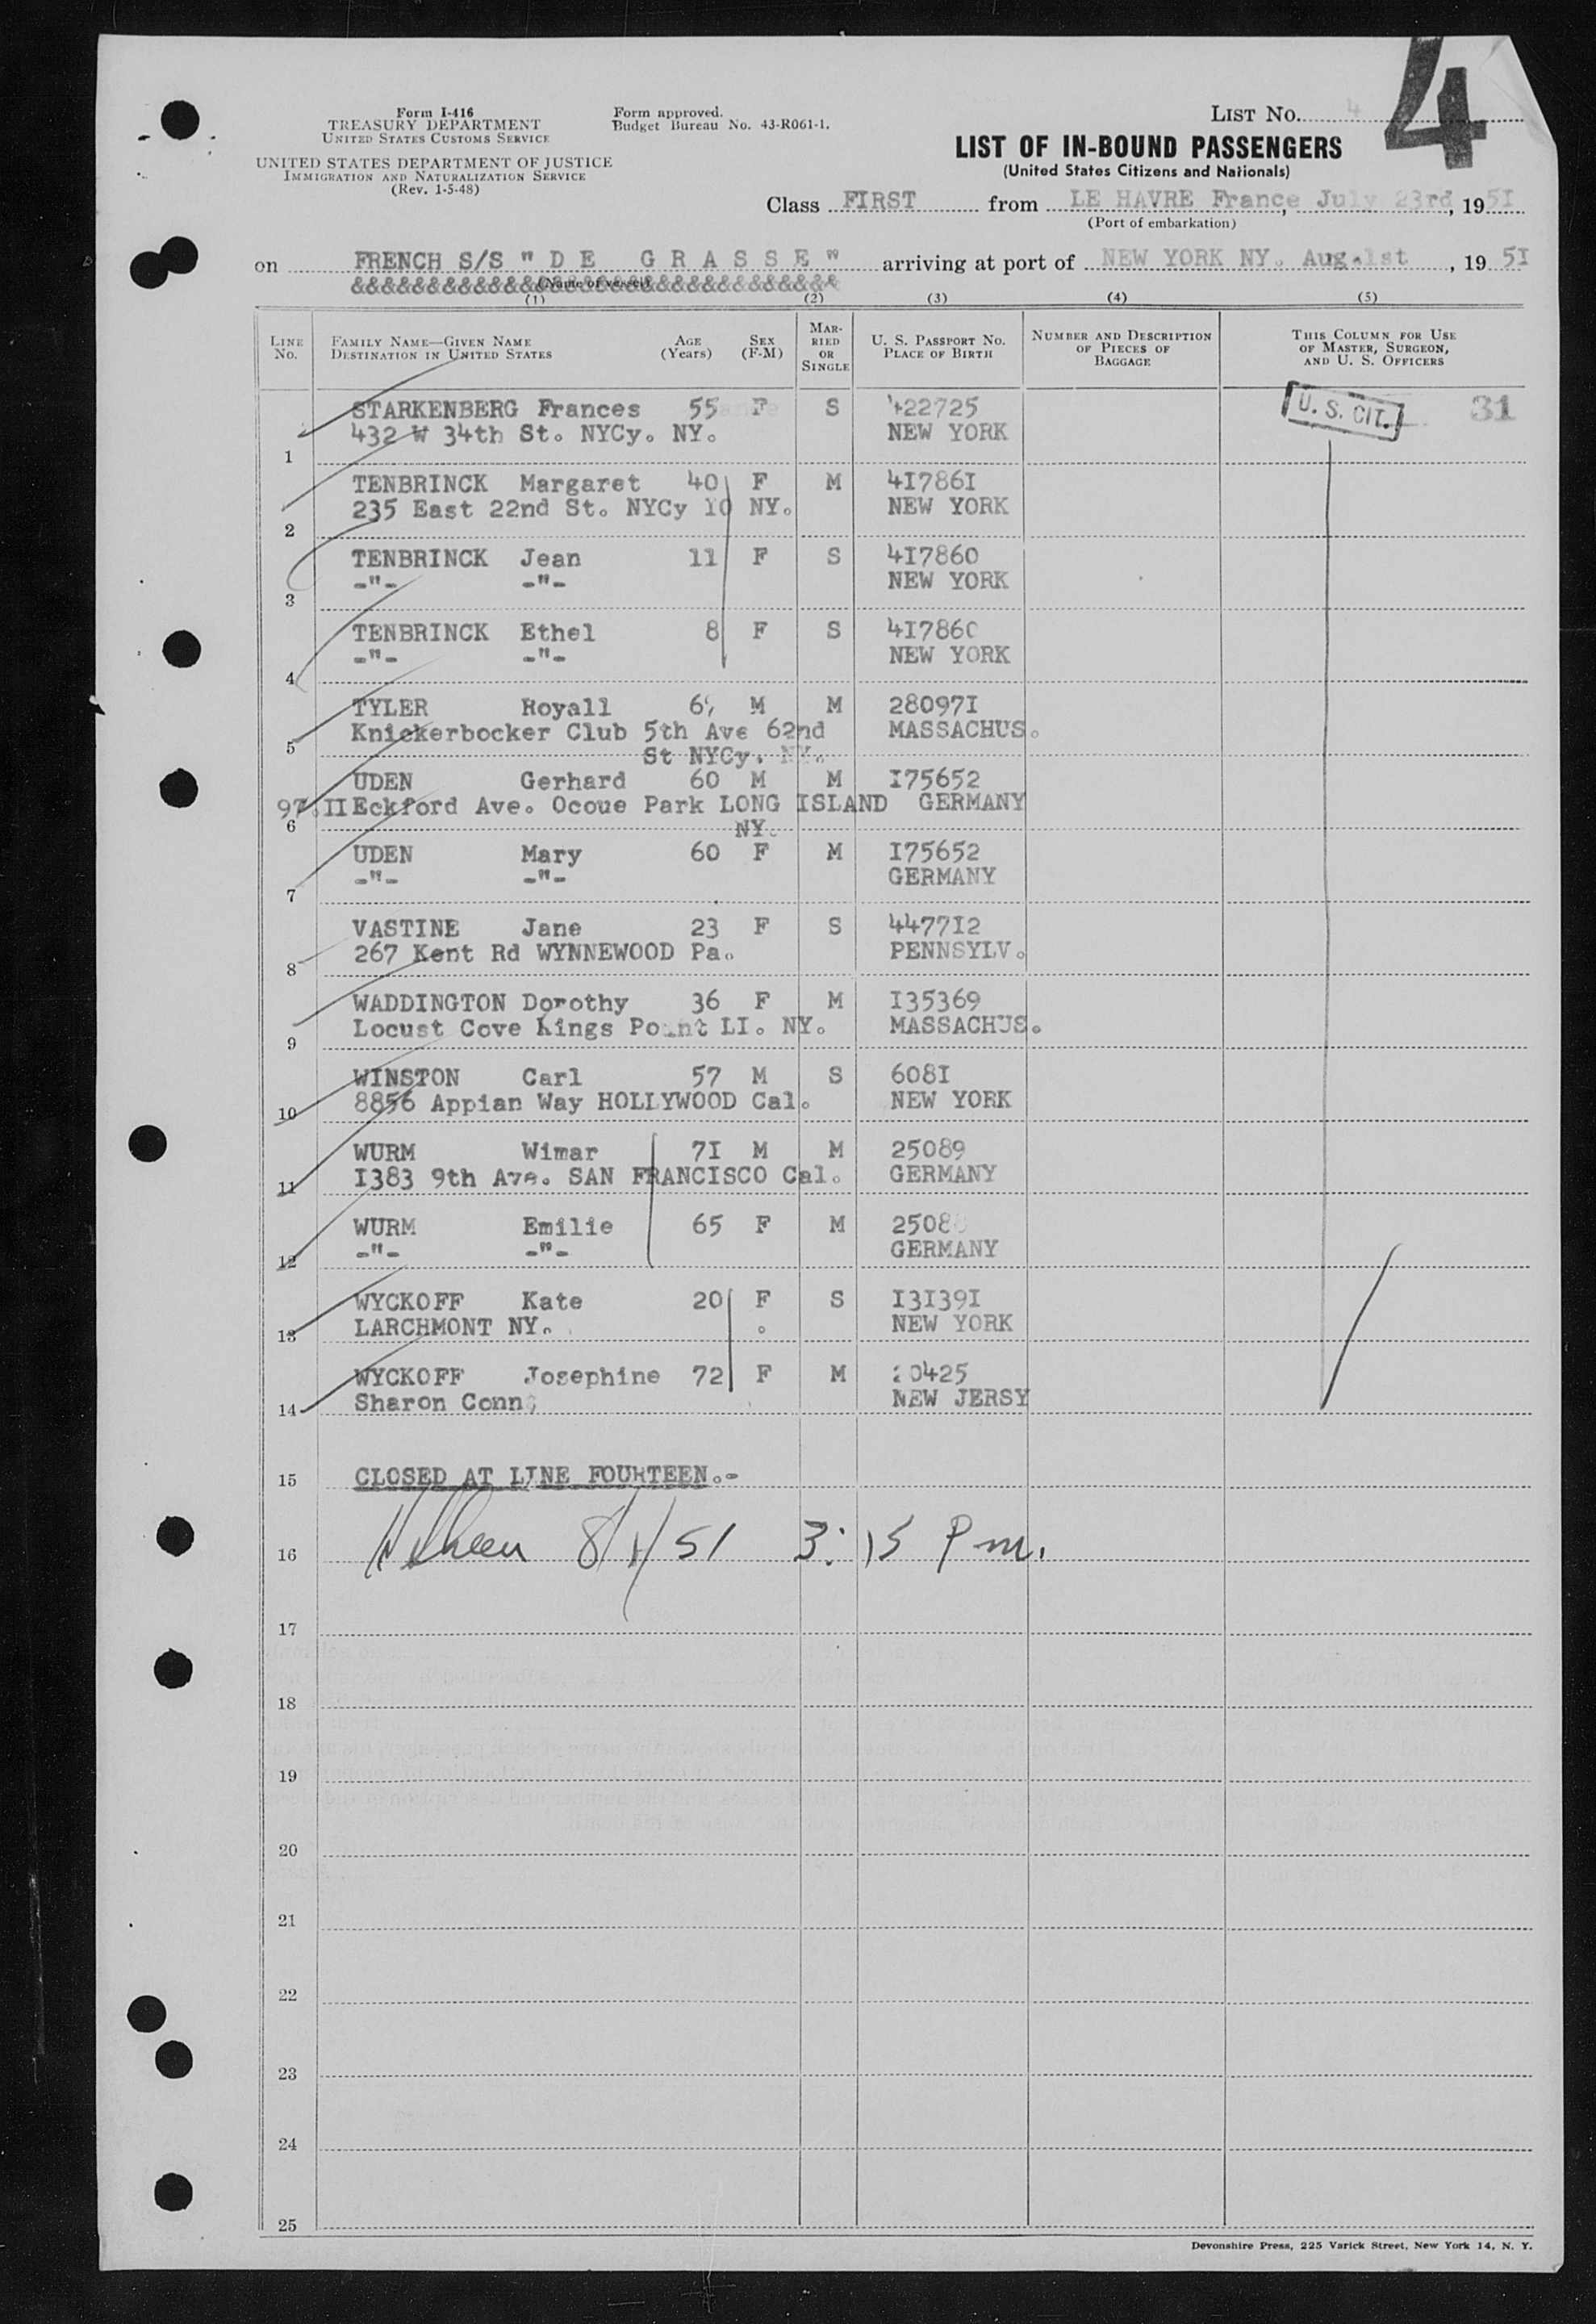 Form I-416
TREASURY DEPARTMENT
UNITED STATES CUSTOMS SERVICE
UNITED STATES DEPARTMENT OF JUSTICE
IMMIGRATION AND NATURALIZATION SERVICE
(Rev. 1-5-48)
Form approved.
Budget Bureau No. 43-R061-1.
LIST NO. 4
4
LIST OF IN-BOUND PASSENGERS
(United States Citizens and Nationals)
Class FIRST from LE HAVRE France, July 23rd, 1951
(Port of embarkation)
on FRENCH S/S "DE GRASSE" arriving at port of NEW YORK NY. Aug.1st, 1951
(Name of vessel)
(1) (2) (3) (4) (5)
LINE No. FAMILY NAME—GIVEN NAME DESTINATION IN UNITED STATES AGE (Years) SEX (F-M) MARRIED OR SINGLE U. S. PASSPORT NO. PLACE OF BIRTH NUMBER AND DESCRIPTION OF PIECES OF BAGGAGE THIS COLUMN FOR USE OF MASTER, SURGEON, AND U. S. OFFICERS
STARKENBERG Frances 55 F S 422725 U. S. CIT. 31
432 W 34th St. NYCy. NY. NEW YORK
1
TENBRINCK Margaret 40 F M 4I786I
235 East 22nd St. NYCy 10 NY. NEW YORK
2
TENBRINCK Jean 11 F S 4I7860
-"- -"- NEW YORK
3
TENBRINCK Ethel 8 F S 4I7860
-"- -"- NEW YORK
4
TYLER Royall M M 28097I
Knickerbocker Club 5th Ave 62nd MASSACHUS.
5
St NYCy. NY.
UDEN Gerhard 60 M M I75652
97.II Eckford Ave. Ocoue Park LONG ISLAND GERMANY
6
NY.
UDEN Mary 60 F M I75652
-"- -"- GERMANY
7
VASTINE Jane 23 F S 4477I2
267 Kent Rd WYNNEWOOD Pa. PENNSYLV.
8
WADDINGTON Dorothy 36 F M I35369
Locust Cove Kings Point LI. NY. MASSACHUS.
9
WINSTON Carl 57 M S 608I
8856 Appian Way HOLLYWOOD Cal. NEW YORK
10
WURM Wimar 7I M M 25089
I383 9th Ave. SAN FRANCISCO Cal. GERMANY
11
WURM Emilie 65 F M
-"- -"- GERMANY
12
WYCKOFF Kate 20 F S I3I39I
LARCHMONT NY. NEW YORK
13
WYCKOFF Josephine 72 F M
Sharon Conn NEW JERSY
14
15 CLOSED AT LINE FOURTEEN.-
16 8/1/51 3:15 Pm.
17
18
19
20
21
22
23
24
25
Devonshire Press, 225 Varick Street, New York 14, N. Y.